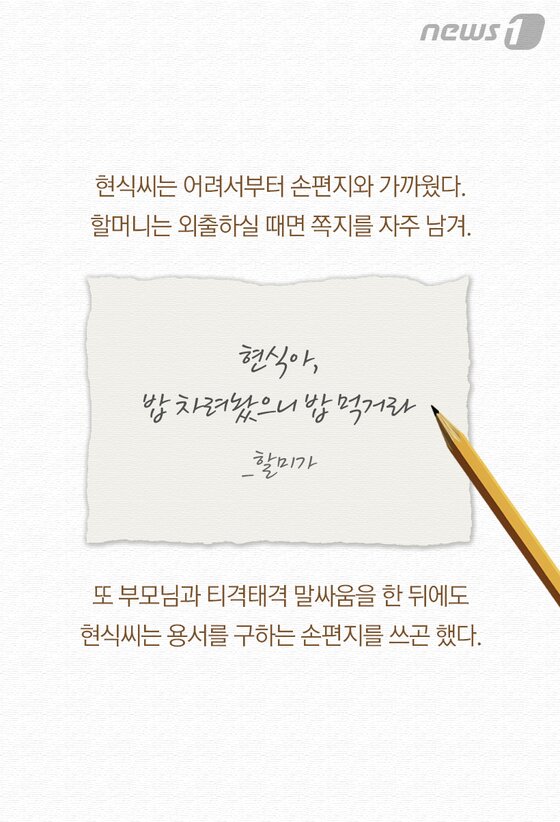 news1
현식씨는 어려서부터 손편지와 가까웠다.
할머니는 외출하실 때면 쪽지를 자주 남겨.
현식아,
밥 차려놨으니 밥 먹거라
_할미가
또 부모님과 티격태격 말싸움을 한 뒤에도
현식씨는 용서를 구하는 손편지를 쓰곤 했다.